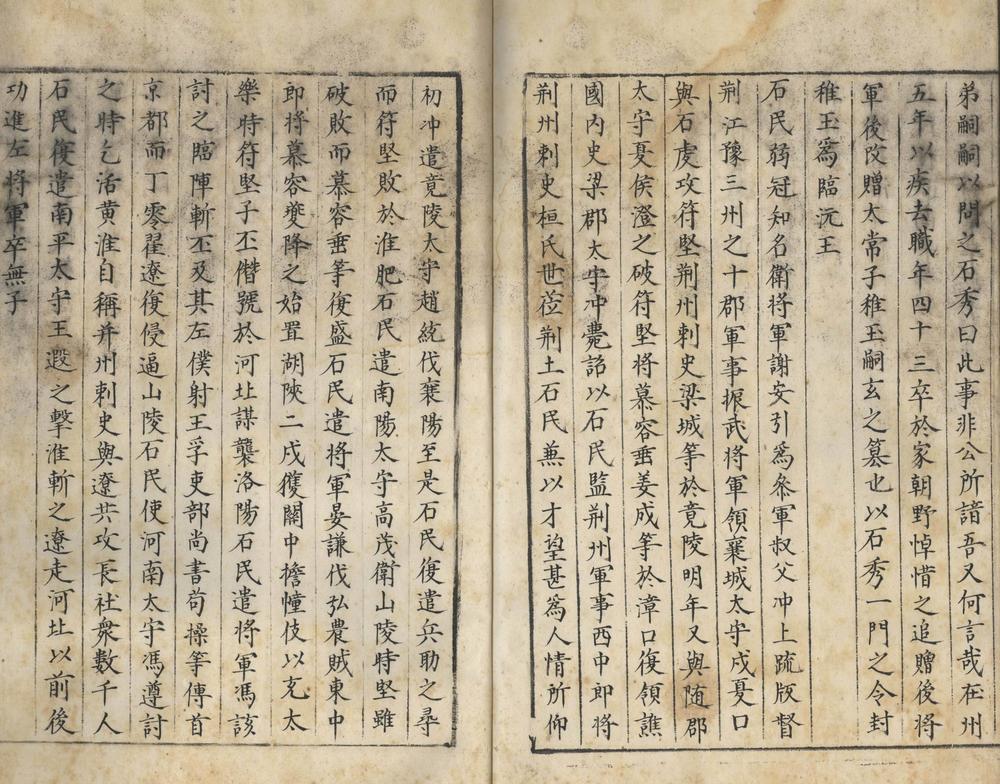 弟嗣嗣以問之石秀曰此事非公所諳吾又何言哉在州
五年以疾去職年四十三卒於家朝野悼惜之追贈後將
軍後改贈太常子稚玉嗣玄之篡也以石秀一門之令封
稚玉爲臨沅王
石民弱冠知名衛將軍謝安引爲叅軍叔父冲上疏版督
荆江豫三州之十郡軍事振武將軍領襄城太守戍夏口
與石虔攻苻堅荆州刺史梁成等於竟陵明年又與随郡
太守夏侯澄之破苻堅將慕容垂姜成等於漳口復領譙
國內史梁郡太守冲薨詔以石民監荆州軍事西中郎將
荆州刺史桓氏世莅荆土石民兼以才望甚爲人情所仰
初冲遣竟陵太守趙統伐襄陽至是石民復遣兵助之尋
而苻堅敗於淮肥石民遣南陽太守高茂衛山陵時堅雖
破敗而慕容垂等復盛石民遣將軍晏謙伐弘農賊東中
郎將慕容夔降之始置湖陝二戍獲關中擔幢伎以充太
樂時苻堅子丕僭號於河北謀襲洛陽石民遣將軍馮該
討之臨陣斬丕及其左僕射王孚吏部尚書苟操等傳首
京都而丁零翟遼復侵逼山陵石民使河南太守馮遵討
之時乞活黄淮自稱并州刺史與遼共攻長社衆數千人
石民復遣南平太守王遐之擊淮斬之遼走河北以前後
功進左將軍卒無子